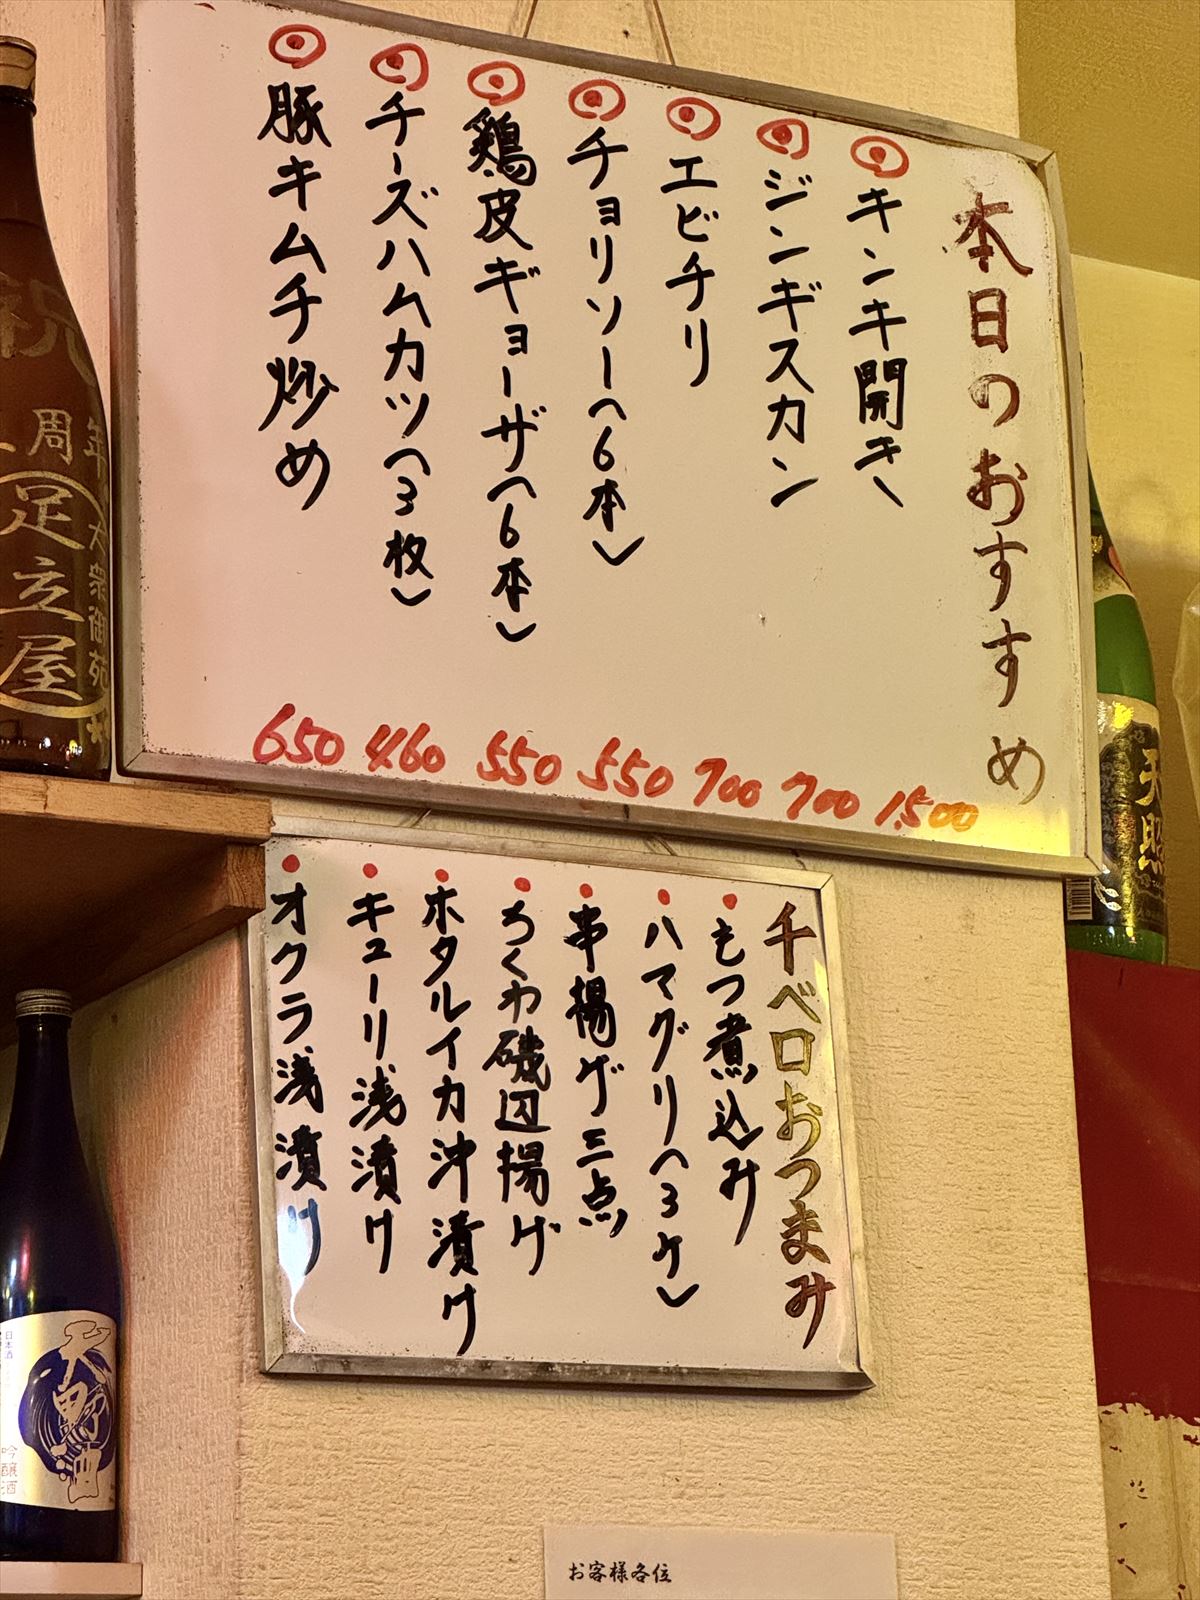 本日のおすすめ
キンキ開き 1,500
ジンギスカン 700
エビチリ 700
チョリソー(6本) 550
鶏皮ギョーザ(6本) 550
チーズハムカツ(3枚) 460
豚キムチ炒め 650
千ベロおつまみ
もつ煮込み
ハマグリ(3ケ)
串揚げ三点
ちくわ磯辺揚げ
ホタルイカ沖漬け
キューリ浅漬け
オクラ浅漬け
祝
周年
足立屋
大衆御苑
天照
日本酒
天野山
吟醸酒
お客様各位